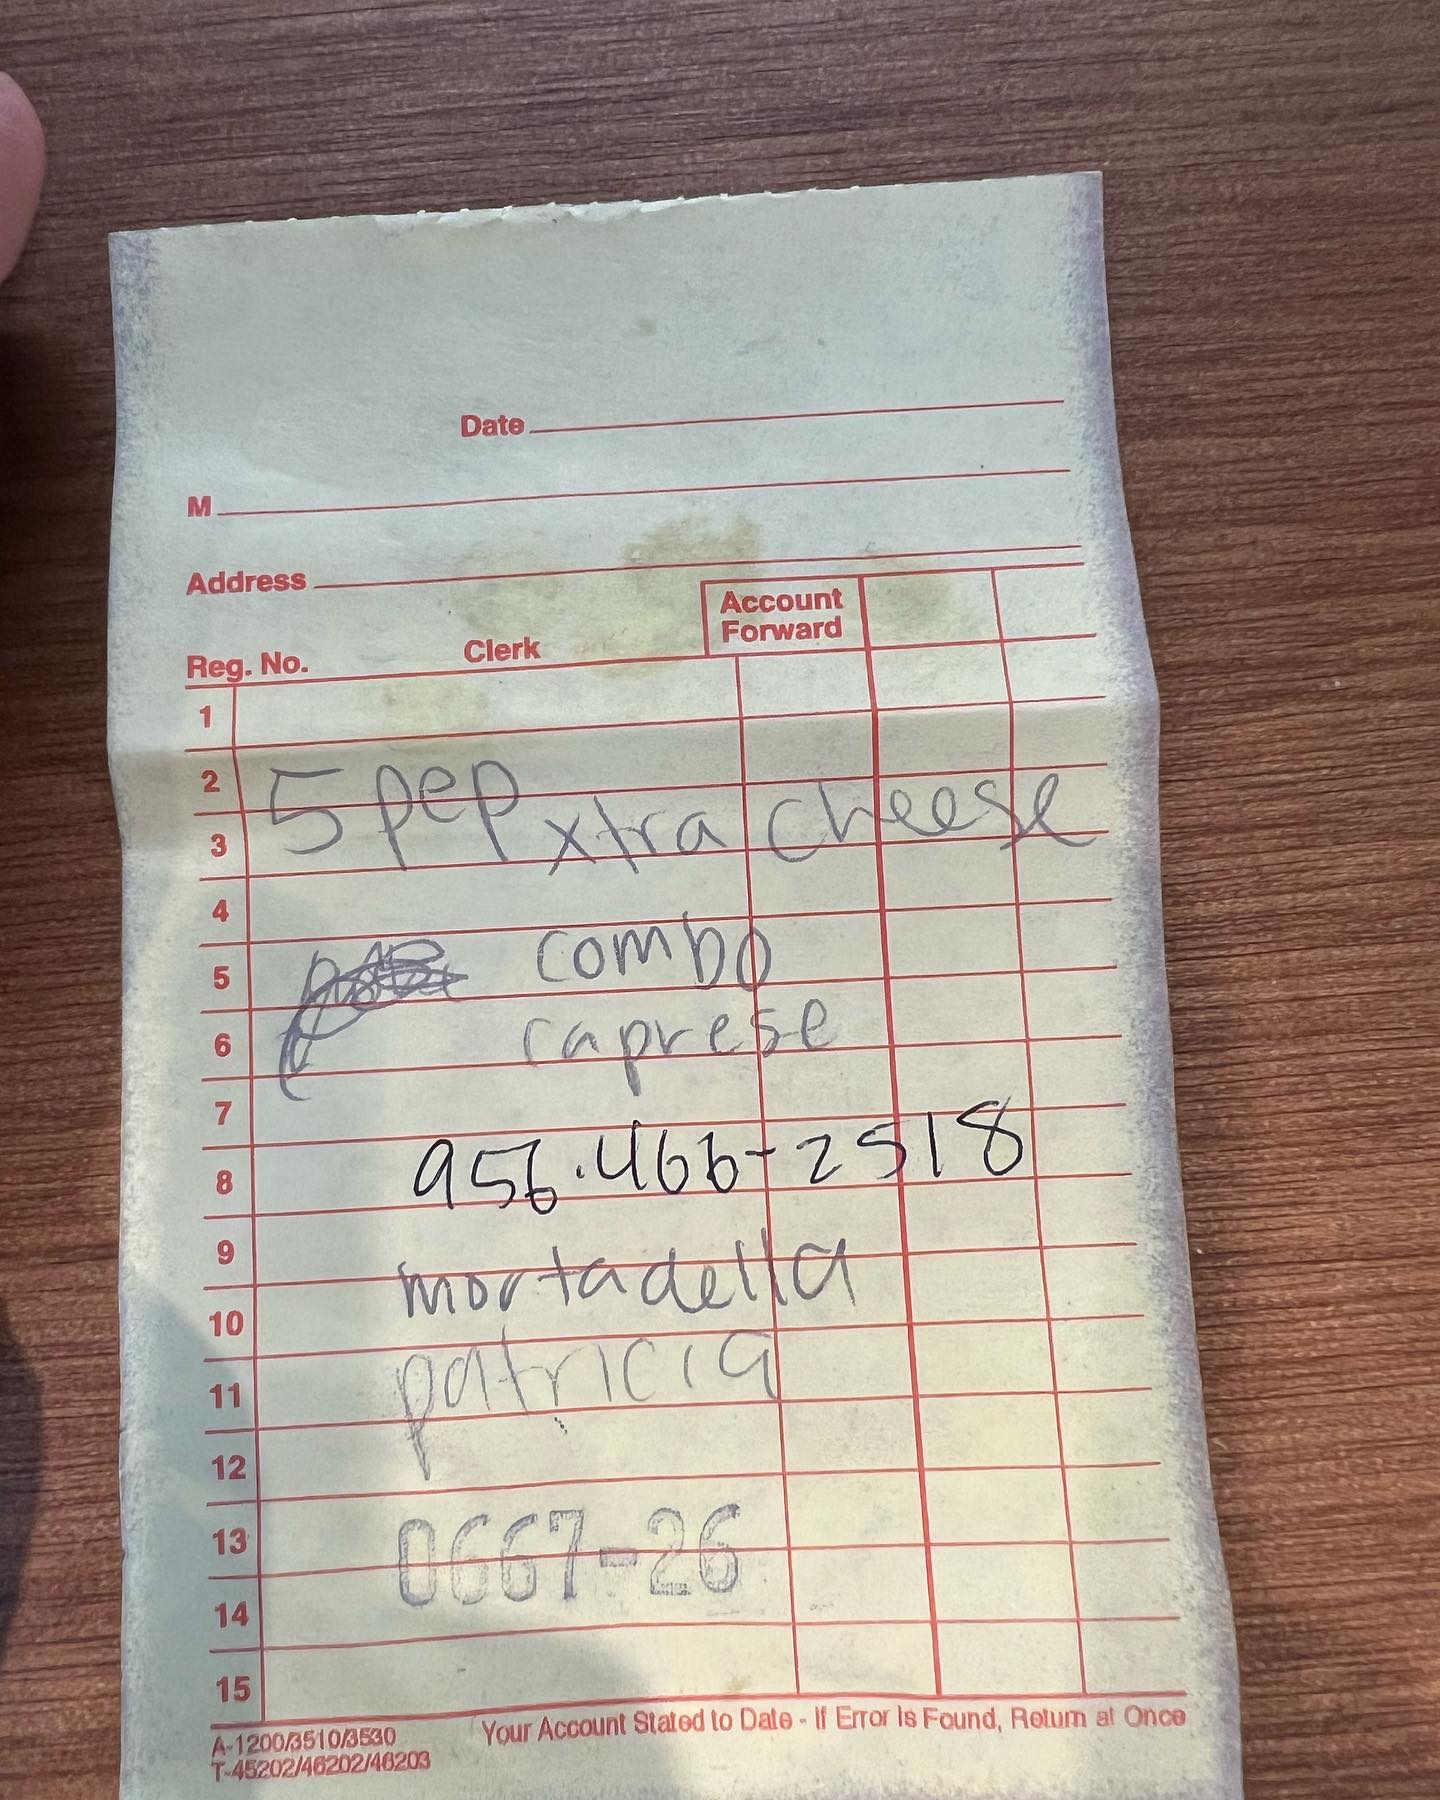 Date
M
Address
Account
Forward
Reg. No. Clerk
1
2 5 pep
3 xtra cheese
4
5 combo
6 caprese
7
8 956.466-2518
9
10 mortadella
11 patricia
12
13 0667-26
14
15
A-1200/3510/3530
T-45202/46202/46203
Your Account Stated to Date - If Error Is Found, Return at Once